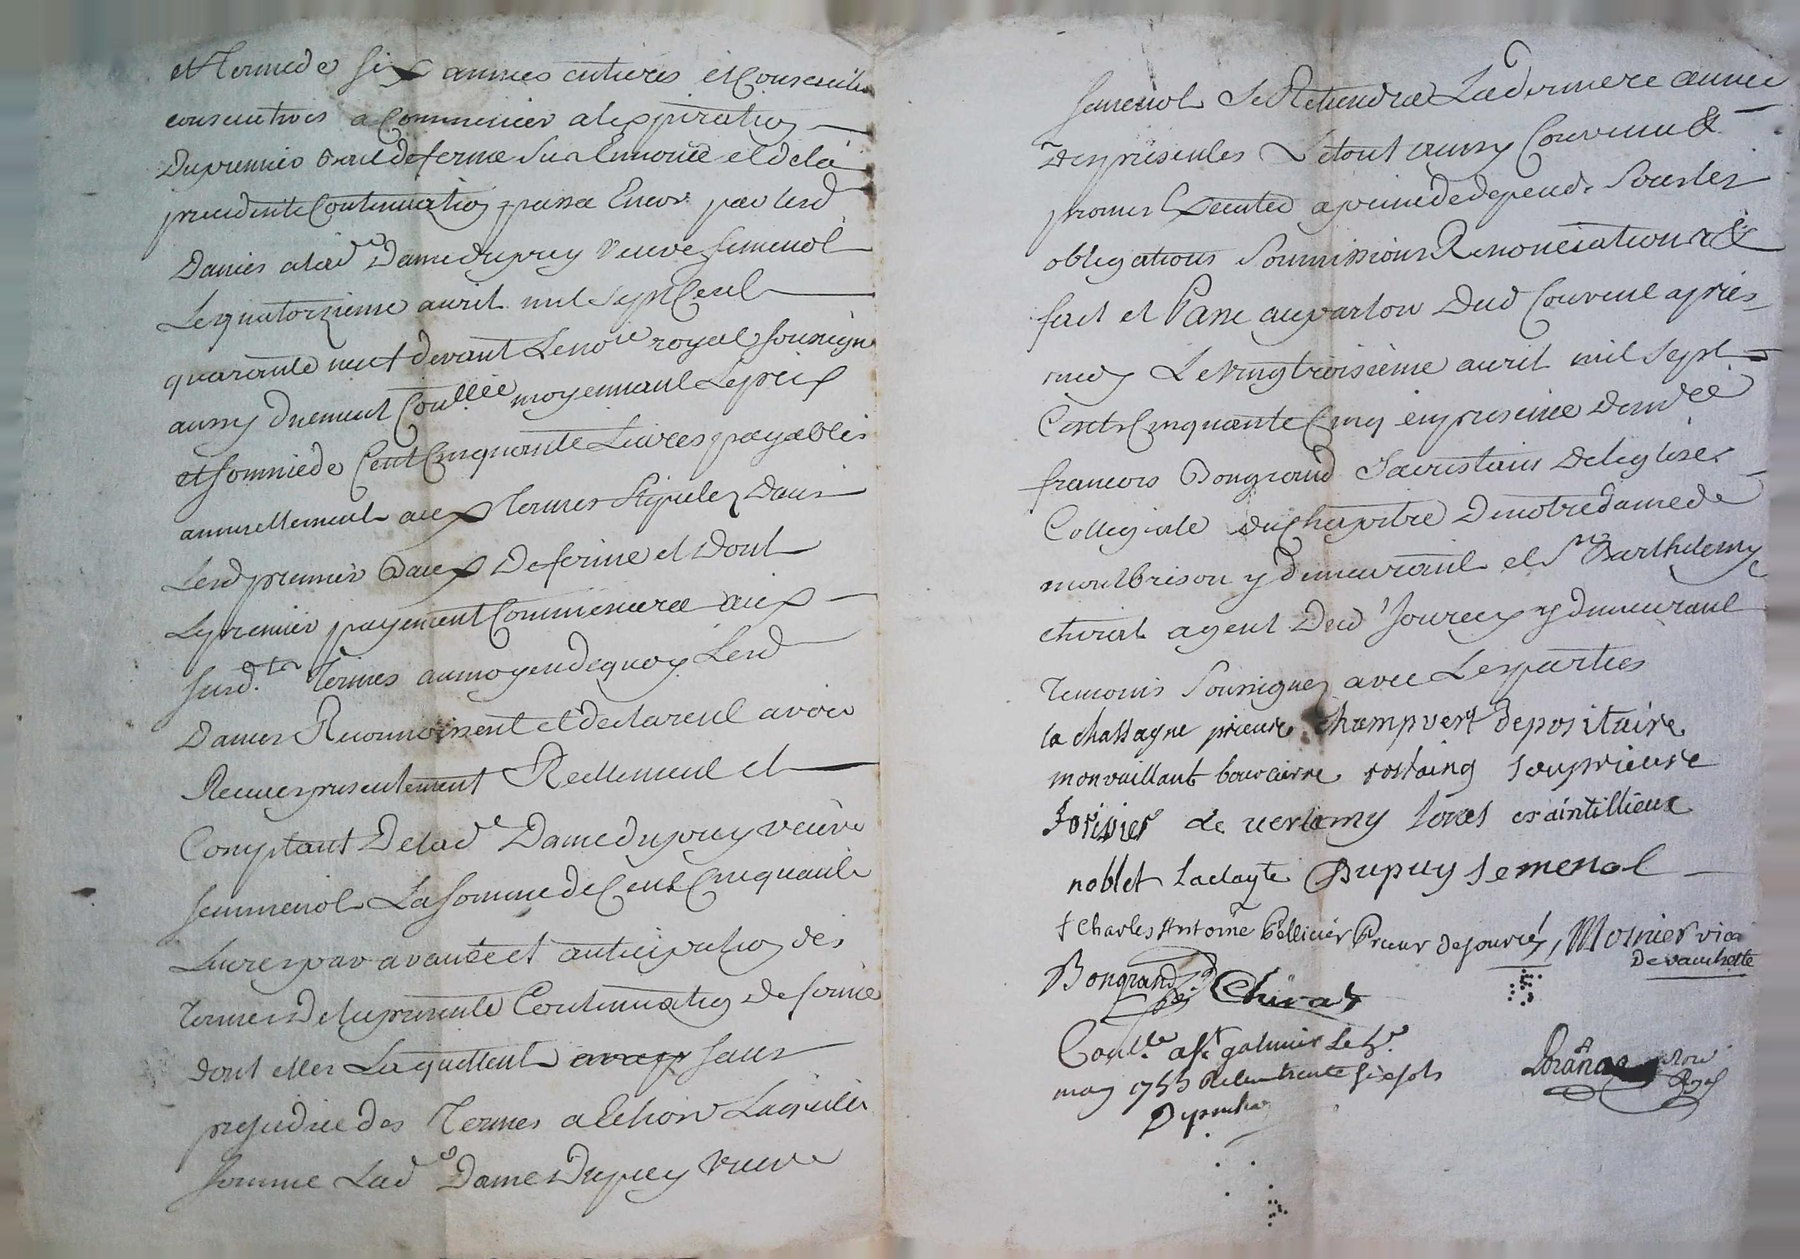 et terme de six années entieres et Consecuti
consecutives a Commencer a lexpiration
Du premier bail de ferme sus Enoncé et de la
precedente Continuation passé Encor par lesd
Dames a lad.e Dame dupuy veuve Semenol
Le quatorzieme avril mil sept Cent
quarante neuf devant Le no.re royal soussigne
aussy duement Coullée moyennant Le prix
et somme de Cent Cinquante Livres payables
annuellement aux termes stipulez dans
Lesd premier Baux De ferme et Dont
Le premier payement Commencera aux
susd.ts termes au moyen de quoy Lesd
Dames Reconnoissent et declarent avoir
Receu presentement Reellement et
Comptant De lad.e Dame dupuy veuve
Semmenol La somme de Cent Cinquante
Livres par avance et anticipation des
termes De la presente Continuation de ferme
dont elles La quittent sans
prejudice des Termes a Echoir Laquelle
somme Lad.e Dame Dupuy veuve
Semenol se Retiendra La derniere année
Des presentes Le tout aussy Convenu &
promis Executer a peine de depend. sous les
obligations soumissions Renonciations &
fait et Passé au parloir Dud Couvent apres
midy Le vingt troisieme avril mil sept
Cent Cinquante Cinq en presence de
francois Bongrand Sacristain De leglise
Collegiale du Chapitre De notre dame de
montbrison y demeurant et Sr Barthelemy
chirat agent Dud Jourcey y demeurant
Temoins soussignez avec Les parties
la chassagne prieure Champvert depositaire
monvaillant boursierre rostaing souprieure
forissier de verlamy
noblet Laclayte Dupuy Semenol
† Charles Antoine Pellicier Prieur de jourcés, Mosnier
De vauchette
Bongrand Chirat
Coull.e a St galmier Le
may 1755 Receu trente six sols